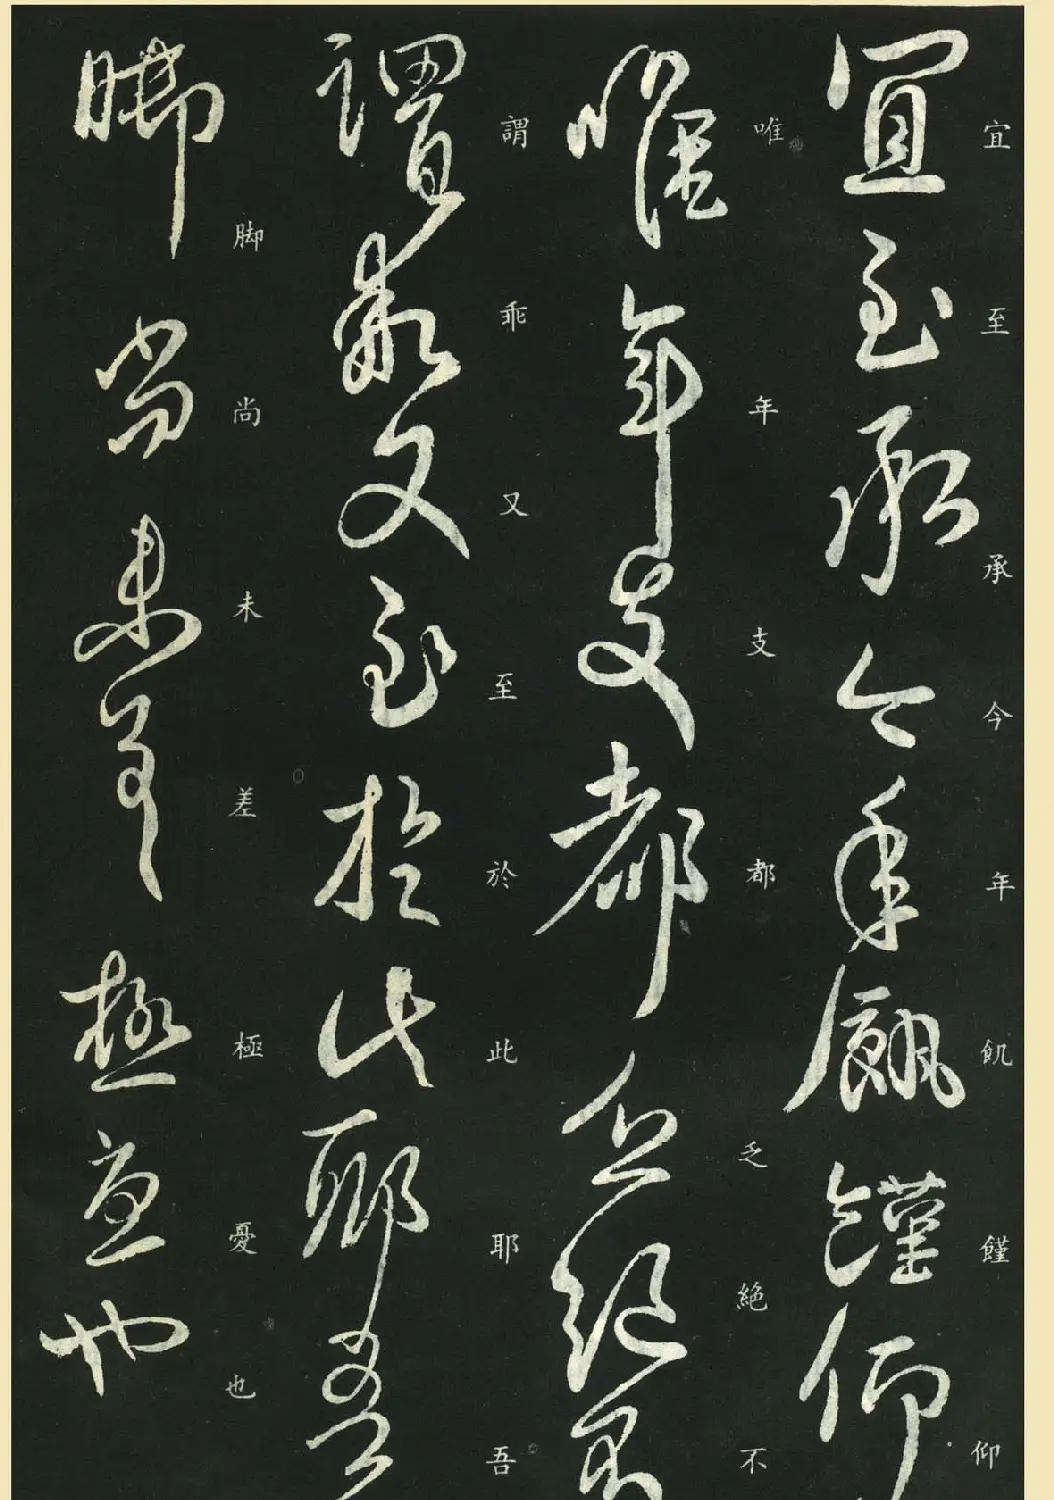 宜至承今年飢饉仰
唯年支都乏絕不
謂乖又至於此耶吾
脚尚未差極憂也